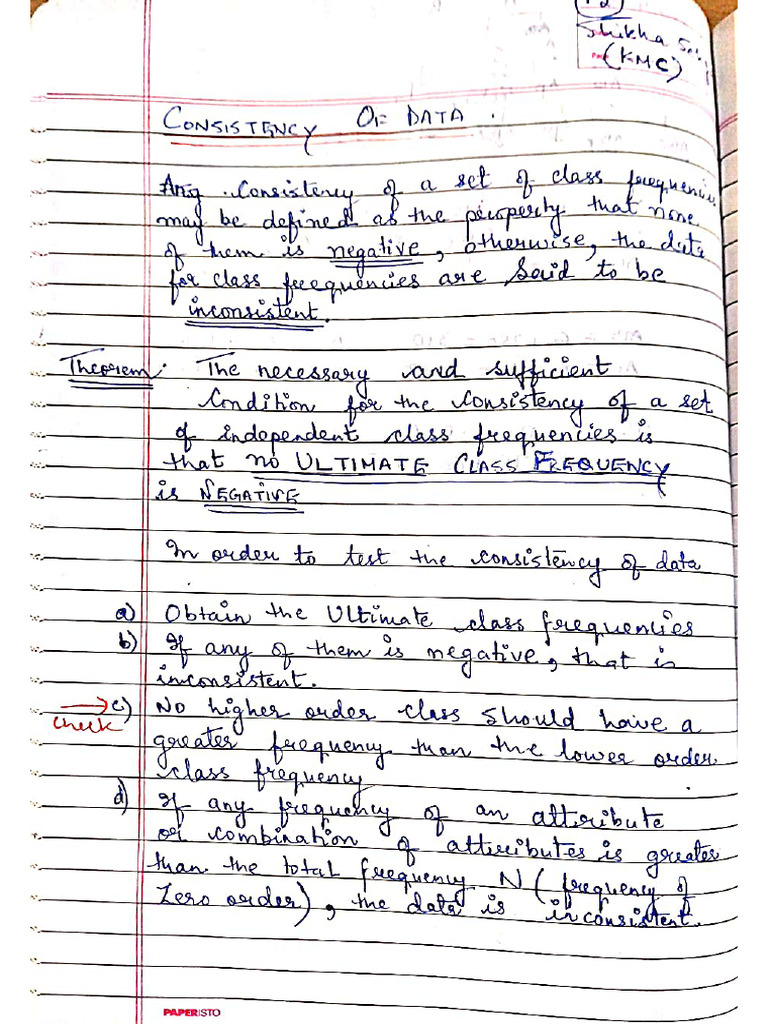 Shikha
(KMC)
CONSISTENCY OF DATA.
Any Consistency of a set of class frequencies
may be defined as the property that none
of them is negative, otherwise, the data
for class frequencies are said to be
inconsistent.
Theorem: The necessary and sufficient
Condition for the Consistency of a set
of independent class frequencies is
that no ULTIMATE CLASS FREQUENCY
is NEGATIVE
In order to test the consistency of data
a) Obtain the Ultimate class frequencies
b) If any of them is negative, that is
inconsistent.
→ c) No higher order class should have a
check
greater frequency than the lower order
class frequency.
d) If any frequency of an attribute
or combination of attributes is greater
than the total frequency N (frequency of
Zero order), the data is inconsistent.
PAPERISTO